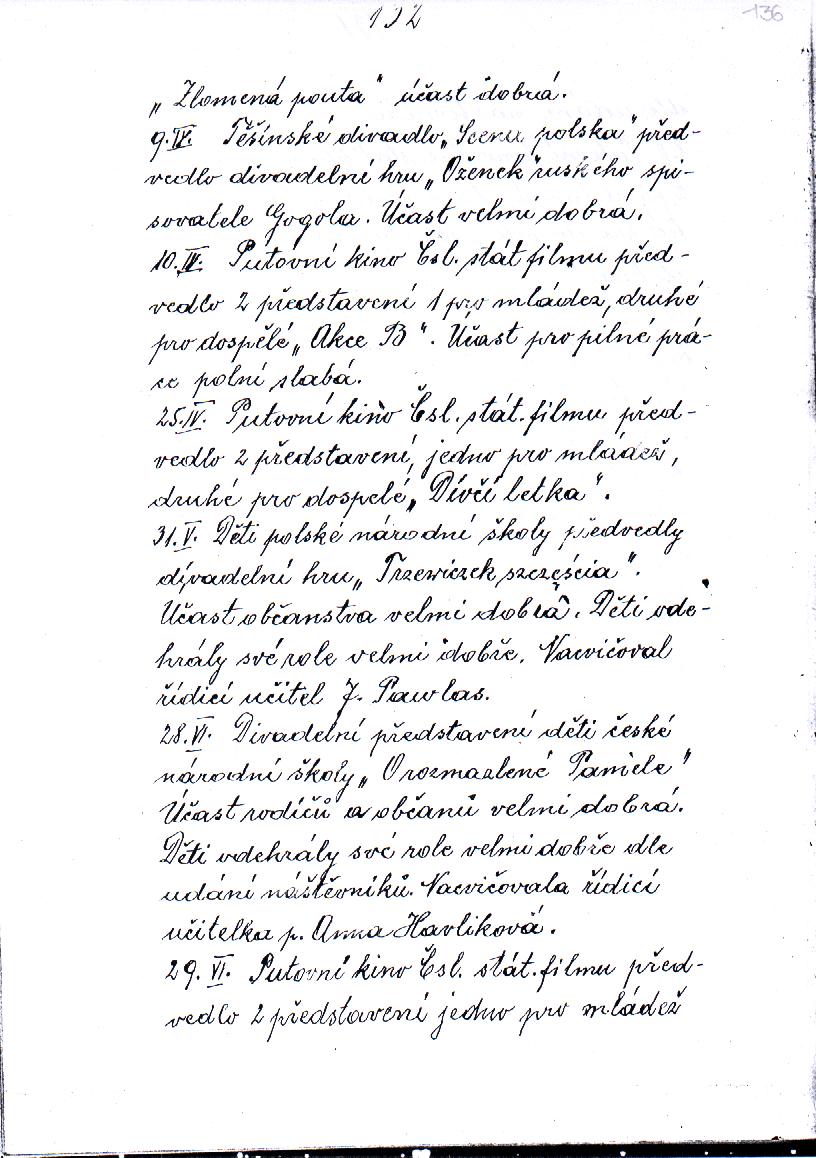 132
136
„Zlomená pouta" účast dobrá.
9.IV. Těšínské divadlo „Scena polska" před-
vedlo divadelní hru „Oženek" ruského spi-
sovatele Gogola. Účast velmi dobrá.
10.IV. Putovní kino Čsl. stát. filmu před-
vedlo 2 představení 1 pro mládež, druhé
pro dospělé „Akce B". Účast pro pilné prá-
ce polní slabá.
25.IV. Putovní kino Čsl. stát. filmu před-
vedlo 2 představení, jedno pro mládež,
druhé pro dospelé „Dívčí letka".
31.V. Děti polské národní školy předvedly
divadelní hru „Trzewiczek szczęścia".
Účast občanstva velmi dobrá. Děti ode-
hrály své role velmi dobře. Nacvičoval
řídicí učitel J. Pawlas.
28.VI. Divadelní představení děti české
národní školy „O rozmazlené Pamele"
Účast rodičů a občanů velmi dobrá.
Děti odehrály své role velmi dobře dle
udání náštěvníků. Nacvičovala řídicí
učitelka p. Anna Havlíková.
29.VI. Putovní kino Čsl. stát. filmu před-
vedlo 2 představení jedno pro mládež